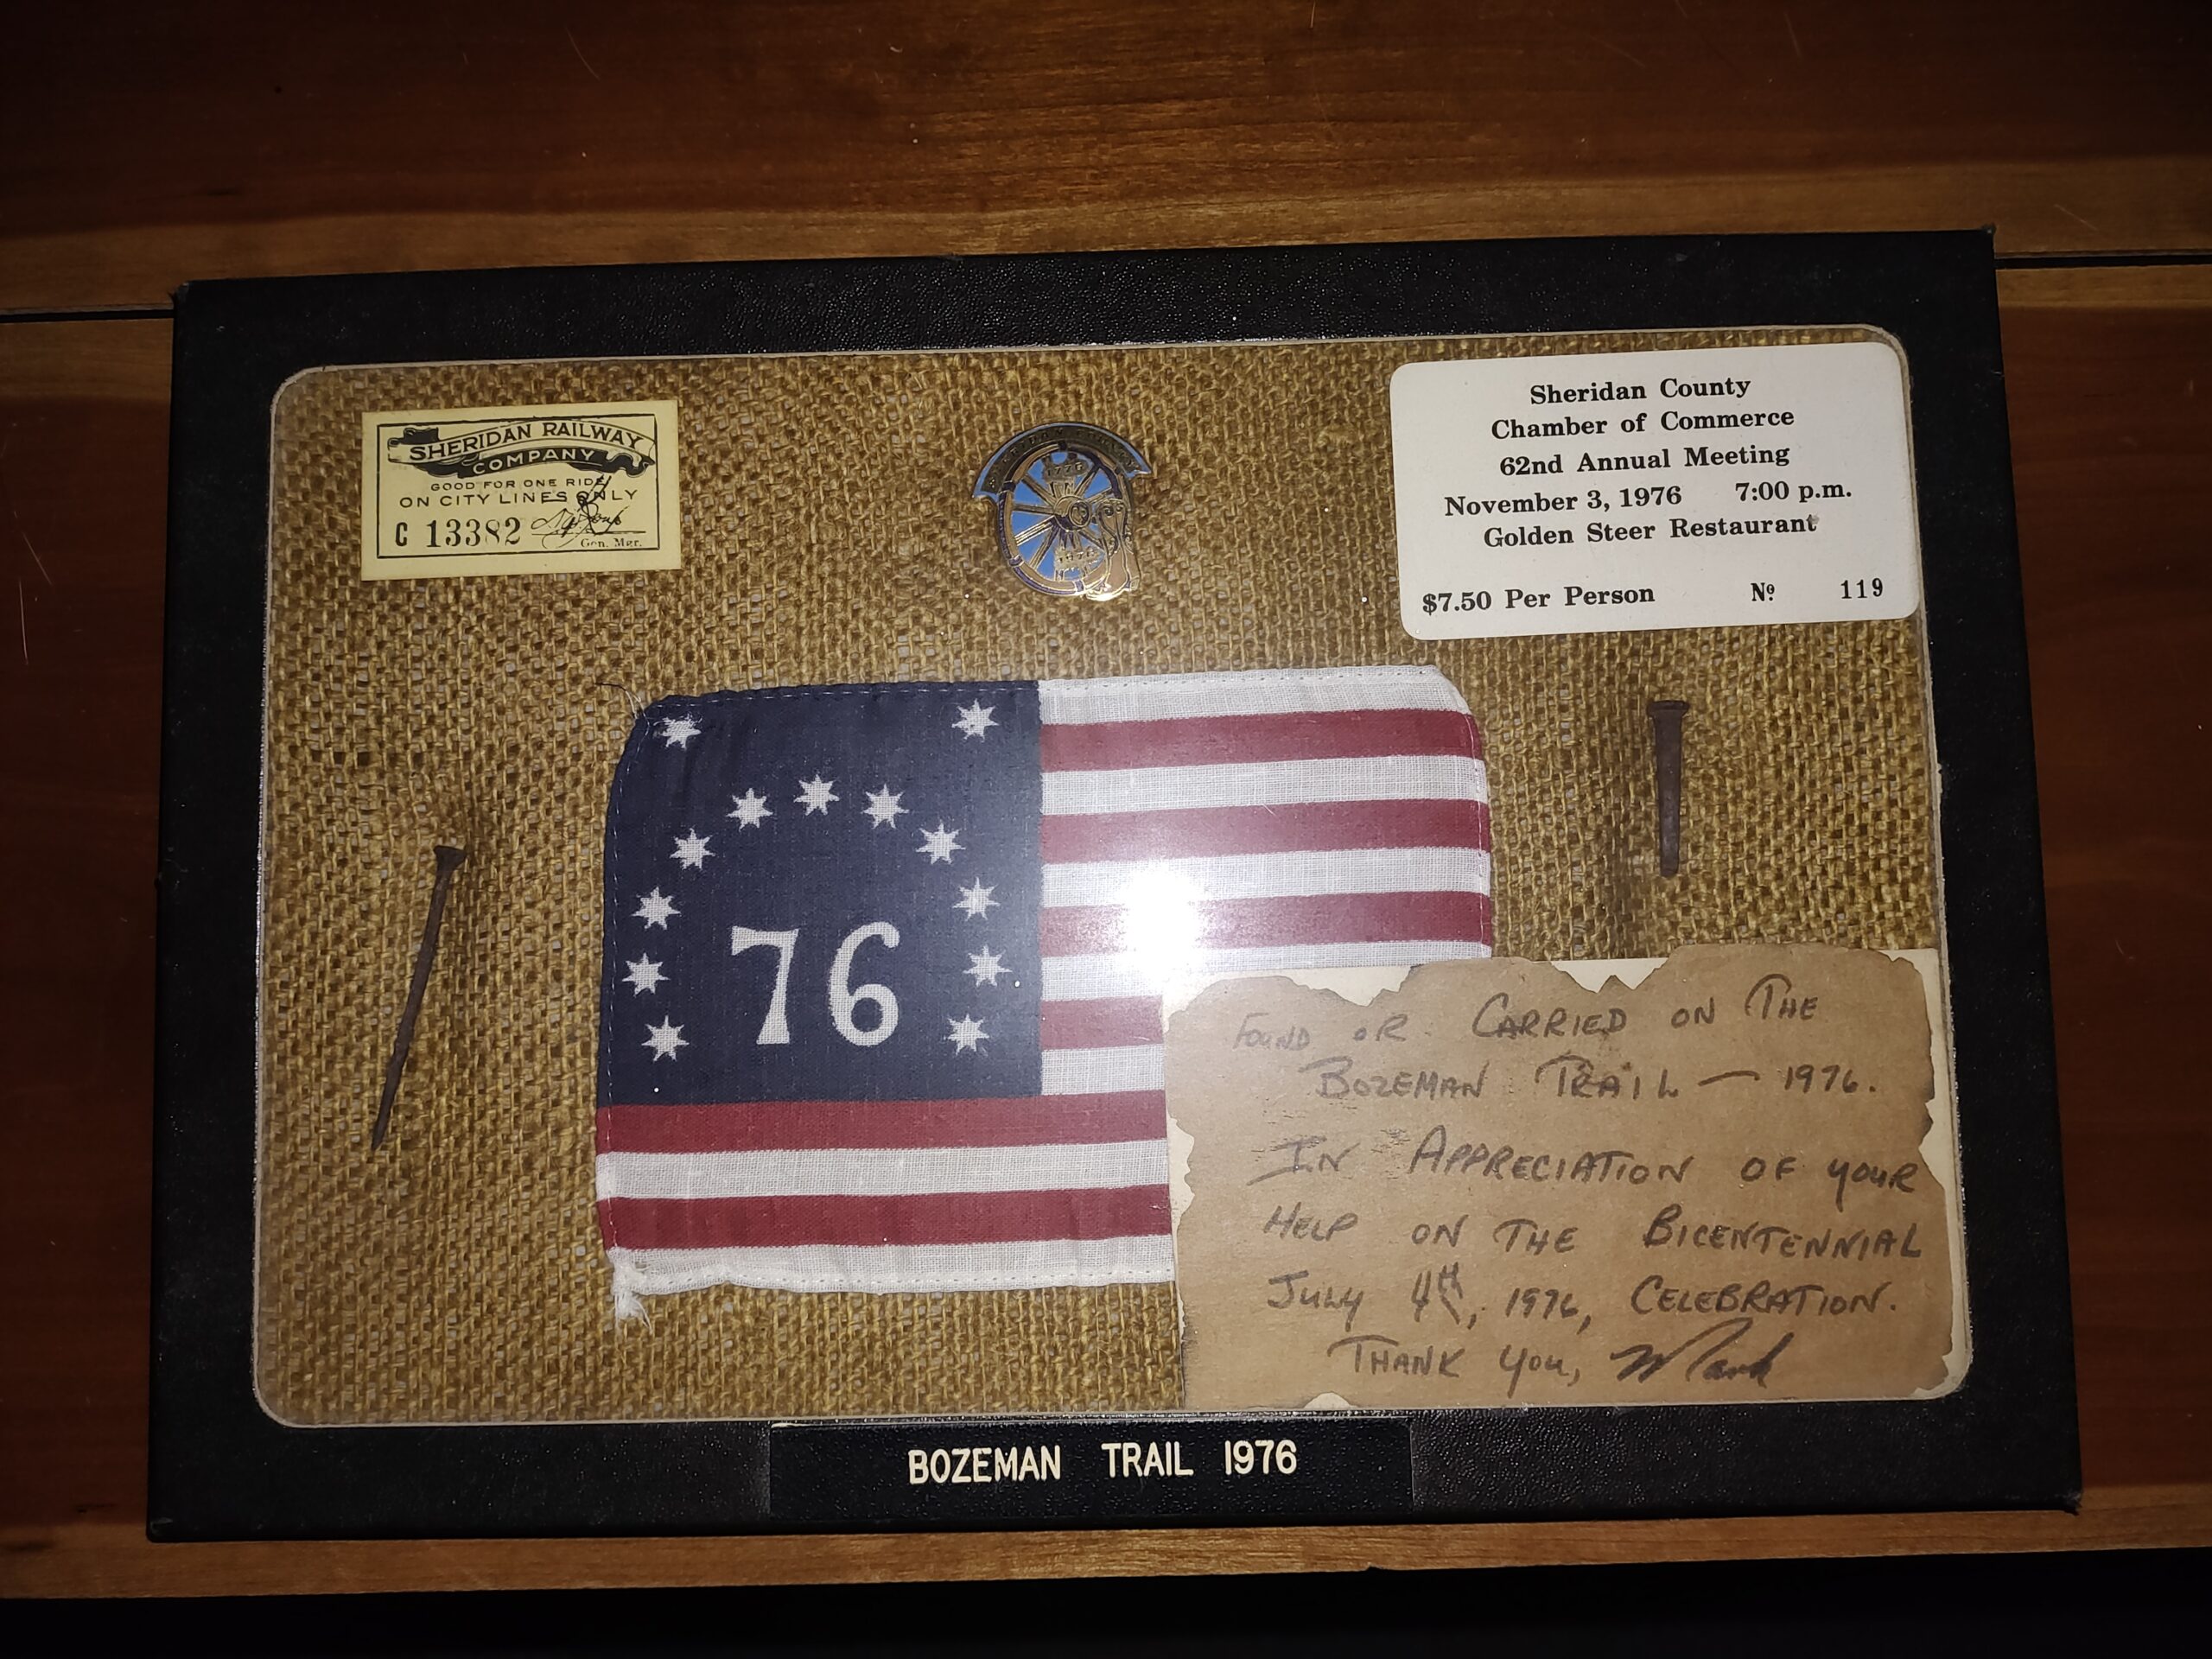 SHERIDAN RAILWAY
COMPANY
GOOD FOR ONE RIDE
ON CITY LINES ONLY
C 13382
Gen. Mgr.
1776
1976
Sheridan County
Chamber of Commerce
62nd Annual Meeting
November 3, 1976 7:00 p.m.
Golden Steer Restaurant
$7.50 Per Person Nº 119
76
FOUND OR CARRIED ON THE
BOZEMAN TRAIL — 1976.
IN APPRECIATION OF YOUR
HELP ON THE BICENTENNIAL
JULY 4th, 1976, CELEBRATION.
THANK YOU, Mark
BOZEMAN TRAIL 1976